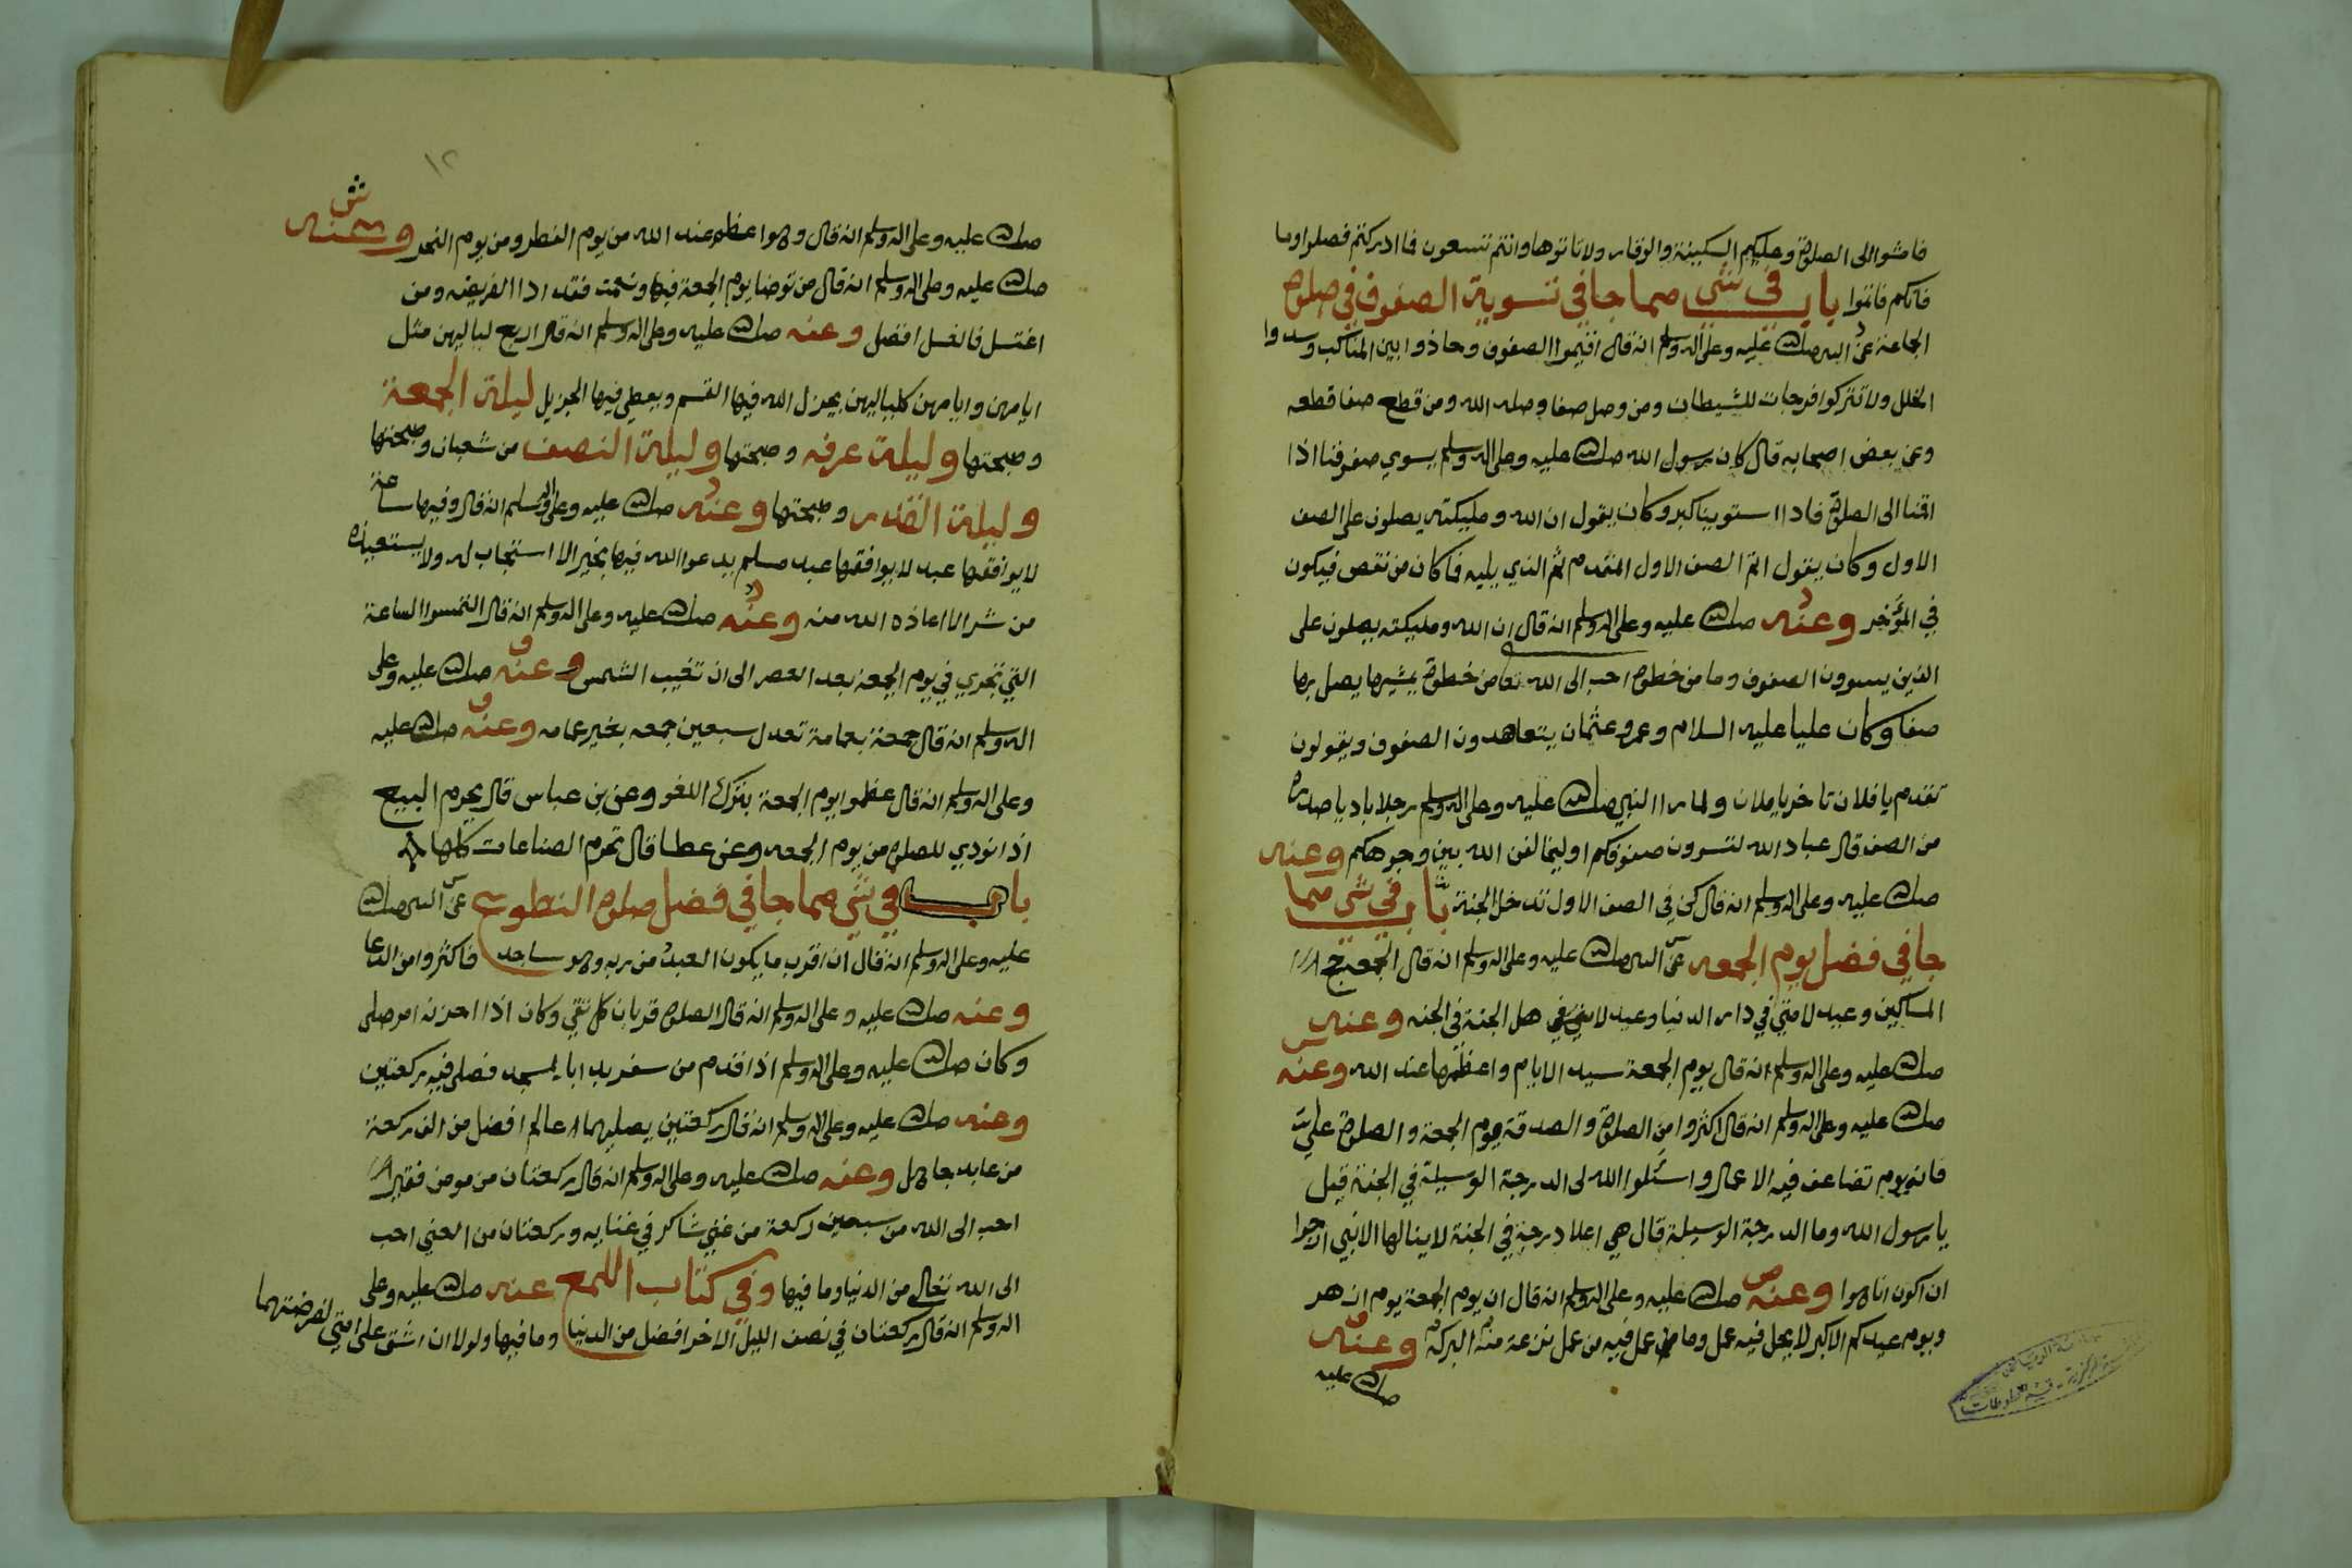 فامشوا الى الصلوة وعليكم السكينة والوقار ولا تاتوها وانتم تسعون فما ادركتم فصلوا وما
فاتكم فاتموا باب في شي مما جا في تسوية الصفوف في صلوة
الجماعة عن النبي صلى الله عليه وعلى اله وسلم انه قال اقيموا الصفوف وحاذوا بين المناكب وسدوا
الخلل ولا تتركوا فرجات للشيطان ومن وصل صفا وصله الله ومن قطع صفا قطعه
وعن بعض اصحابه قال كان رسول الله صلى الله عليه وعلى اله وسلم يسوي صفوفنا اذا
اقمنا الى الصلوة فاذا استوينا كبر وكان يقول ان الله ومليكته يصلون على الصف
الاول وكان يقول اتم الصف الاول المتقدم ثم الذي يليه فما كان من نقص فيكون
في المؤخر وعنه صلى الله عليه وعلى اله وسلم انه قال ان الله ومليكته يصلون على
الذين يسوون الصفوف وما من خطوة احب الى الله تعا من خطوة يمشيها يصل بها
صفا وكان عليا عليه السلام وعمر وعثمان يتعاهدون الصفوف ويقولون
تقدم يا فلان تاخر يا فلان ولما را النبي صلى الله عليه وعلى اله وسلم رجلا باديا صدره
من الصف قال عباد الله لتسون صفوفكم او ليخالفن الله بين وجوهكم وعنه
صلى الله عليه وعلى اله وسلم انه قال كن في الصف الاول تدخل الجنة باب في شي مما
جا في فضل يوم الجمعه عن النبي صلى الله عليه وعلى اله وسلم انه قال الجمعه حج
المساكين وعيد لامتي في دار الدنيا وعيد لامتي في هل الجنة في الجنه وعنه
صلى الله عليه وعلى اله وسلم انه قال يوم الجمعة سيد الايام واعظمها عند الله وعنه
صلى الله عليه وعلى اله وسلم انه قال اكثروا من الصلوة والصدقة يوم الجمعة والصلوة علي
فانه يوم تضاعف فيه الاعمال واسئلوا الله لي الدرجة الوسيلة في الجنة قيل
يا رسول الله وما الدرجة الوسيلة قال هي اعلا درجة في الجنة لا ينالها الا نبي ارجوا
ان اكون انا هوا وعنه صلى الله عليه وعلى اله وسلم انه قال ان يوم الجمعة يوم ازهر
ويوم عيدكم الاكبر لا يحل فيه عمل وما عمل فيه من عمل نزعة منه البركة وعنه
صلى الله عليه
١٢
صلى الله عليه وعلى اله وسلم انه قال وهوا عظم عند الله من يوم الفطر ومن يوم النحر وعنه
صلى الله عليه وعلى اله وسلم انه قال من توضا يوم الجمعة فبها ونعمت فقد ادا الفريضه ومن
اغتسل فالغسل افضل وعنه صلى الله عليه وعلى اله وسلم انه قال اربع لياليهن مثل
ايامهن وايامهن كلياليهن يجزل الله فيها القسم ويعطي فيها الجزيل ليلة الجمعة
وصبحتها وليلة عرفه وصبحتها وليلة النصف من شعبان وصبحتها
وليلة القدر وصبحتها وعنه صلى الله عليه وعلى اله وسلم انه قال وفيها ساعة
لا يوافقها عبد لا يوافقها عبد مسلم يدعوا الله فيها بخير الا استجاب له ولا يستعيذه
من شر الا اعاذه الله منه وعنه صلى الله عليه وعلى اله وسلم انه قال التمسوا الساعة
التي تتحرى في يوم الجمعة بعد العصر الى ان تغيب الشمس وعنه صلى الله عليه وعلى
اله وسلم انه قال جمعة بعمامة تعدل سبعين جمعه بغير عمامه وعنه صلى الله عليه
وعلى اله وسلم انه قال عظموا يوم الجمعة بترك اللغو وعن بن عباس قال يحرم البيع
اذا نودي للصلوة من يوم الجمعه وعن عطا قال تحرم الصناعات كلها
باب في شي مما جا في فضل صلوة التطوع عن النبي صلى الله
عليه وعلى اله وسلم انه قال ان اقرب ما يكون العبد من ربه وهو ساجد فاكثروا من الدعا
وعنه صلى الله عليه وعلى اله وسلم انه قال الصلوة قربان كل تقي وكان اذا احزنه امر صلى
وكان صلى الله عليه وعلى اله وسلم اذا قدم من سفر بدا بالمسجد فصلى فيه ركعتين
وعنه صلى الله عليه وعلى اله وسلم انه قال ركعتين يصليهما عالم افضل من الف ركعة
من عابد جاهل وعنه صلى الله عليه وعلى اله وسلم انه قال ركعتان من مومن فقير
احب الى الله من سبعين ركعة من غني شاكر في غنايه وركعتان من الغني احب
الى الله تعالى من الدنيا وما فيها وفي كتاب اللمع عنه صلى الله عليه وعلى
اله وسلم انه قال ركعتان في نصف الليل الاخر افضل من الدنيا وما فيها ولولا ان اشق على امتي لفرضتهما